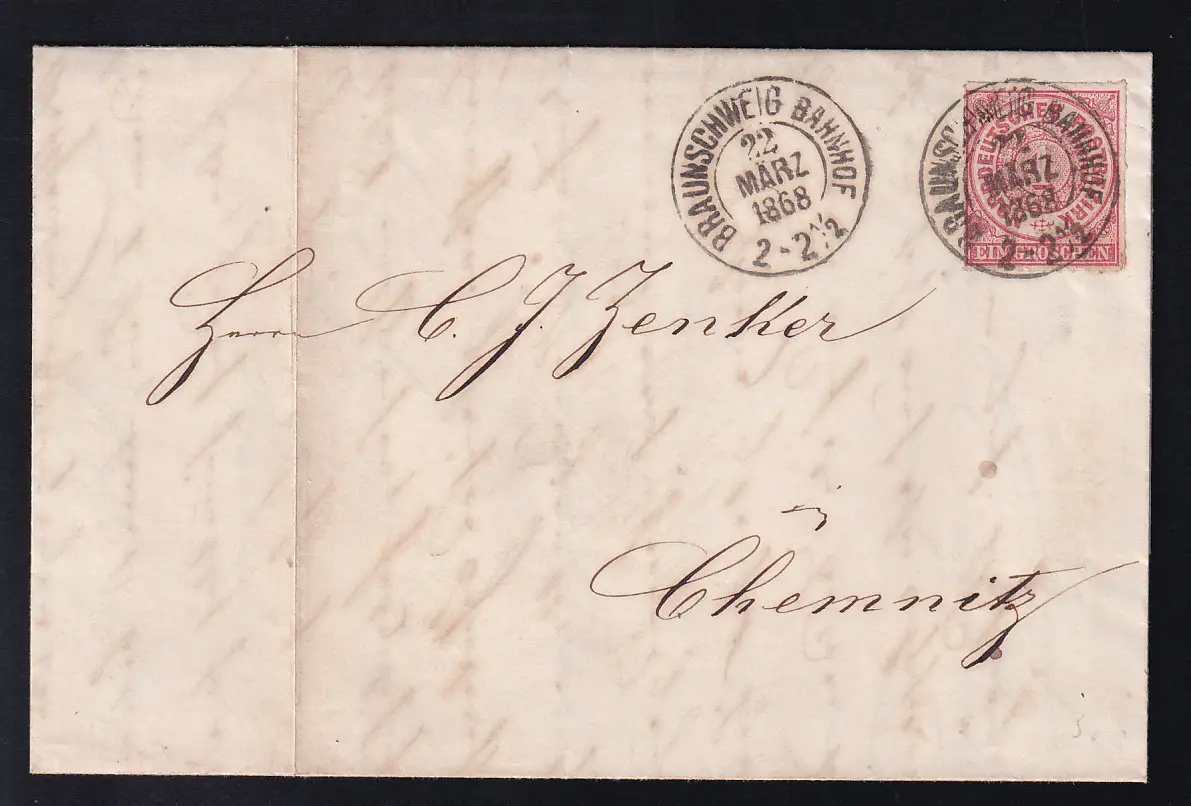 BRAUNSCHWEIG BAHNHOF
22
MÄRZ
1868
2-2½
BRAUNSCHWEIG BAHNHOF
22
MÄRZ
1868
2-2½
EIN GROSCHEN
Herrn C. J. Zenker
in
Chemnitz